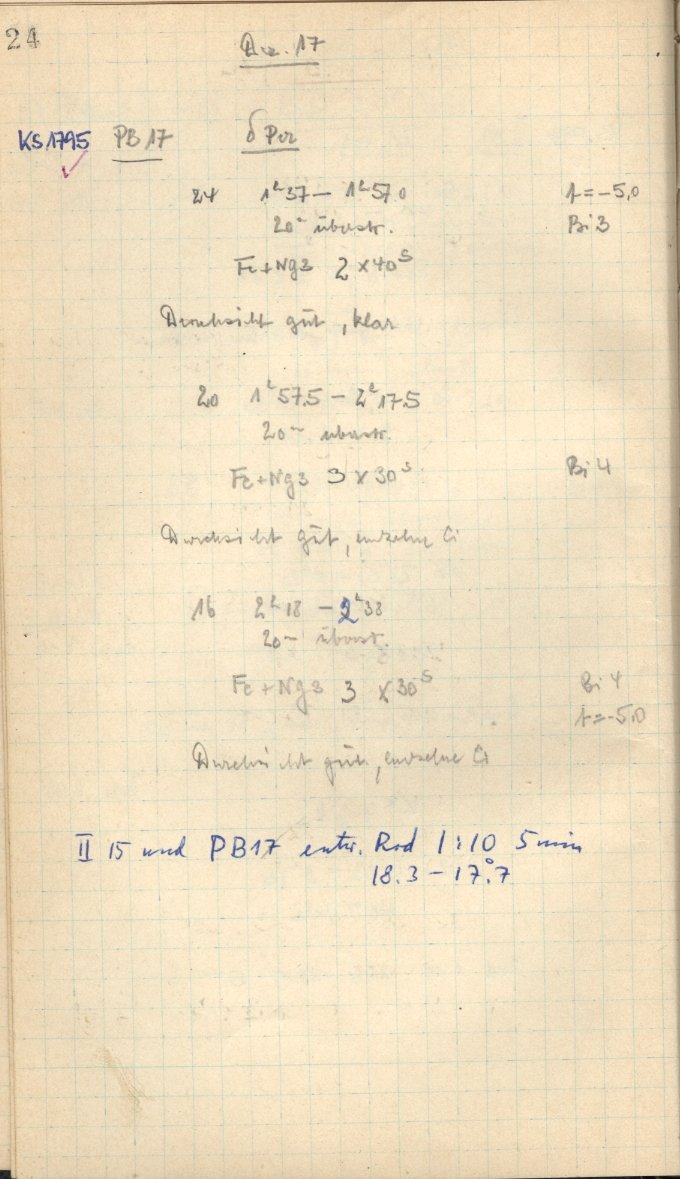 24
Dez. 17
KS1795 PB 17 δ Per
24 1ʰ37 – 1ʰ57.0 t = –5,0
20ᵐ überstr. Bi 3
Fe+Ng3 2 x 40ˢ
Durchsicht gut, klar
20 1ʰ57.5 – 2ʰ17.5
20ᵐ überstr.
Fe+Ng3 3 x 30ˢ Bi 4
Durchsicht gut, einzelne Ci
16 2ʰ18 – 2ʰ38
20ᵐ überstr.
Fe+Ng3 3 x 30ˢ Bi 4
t = –5,0
Durchsicht gut, einzelne Ci
II 15 und PB17 entw. Rod 1:10 5 min
18.3 – 17°.7